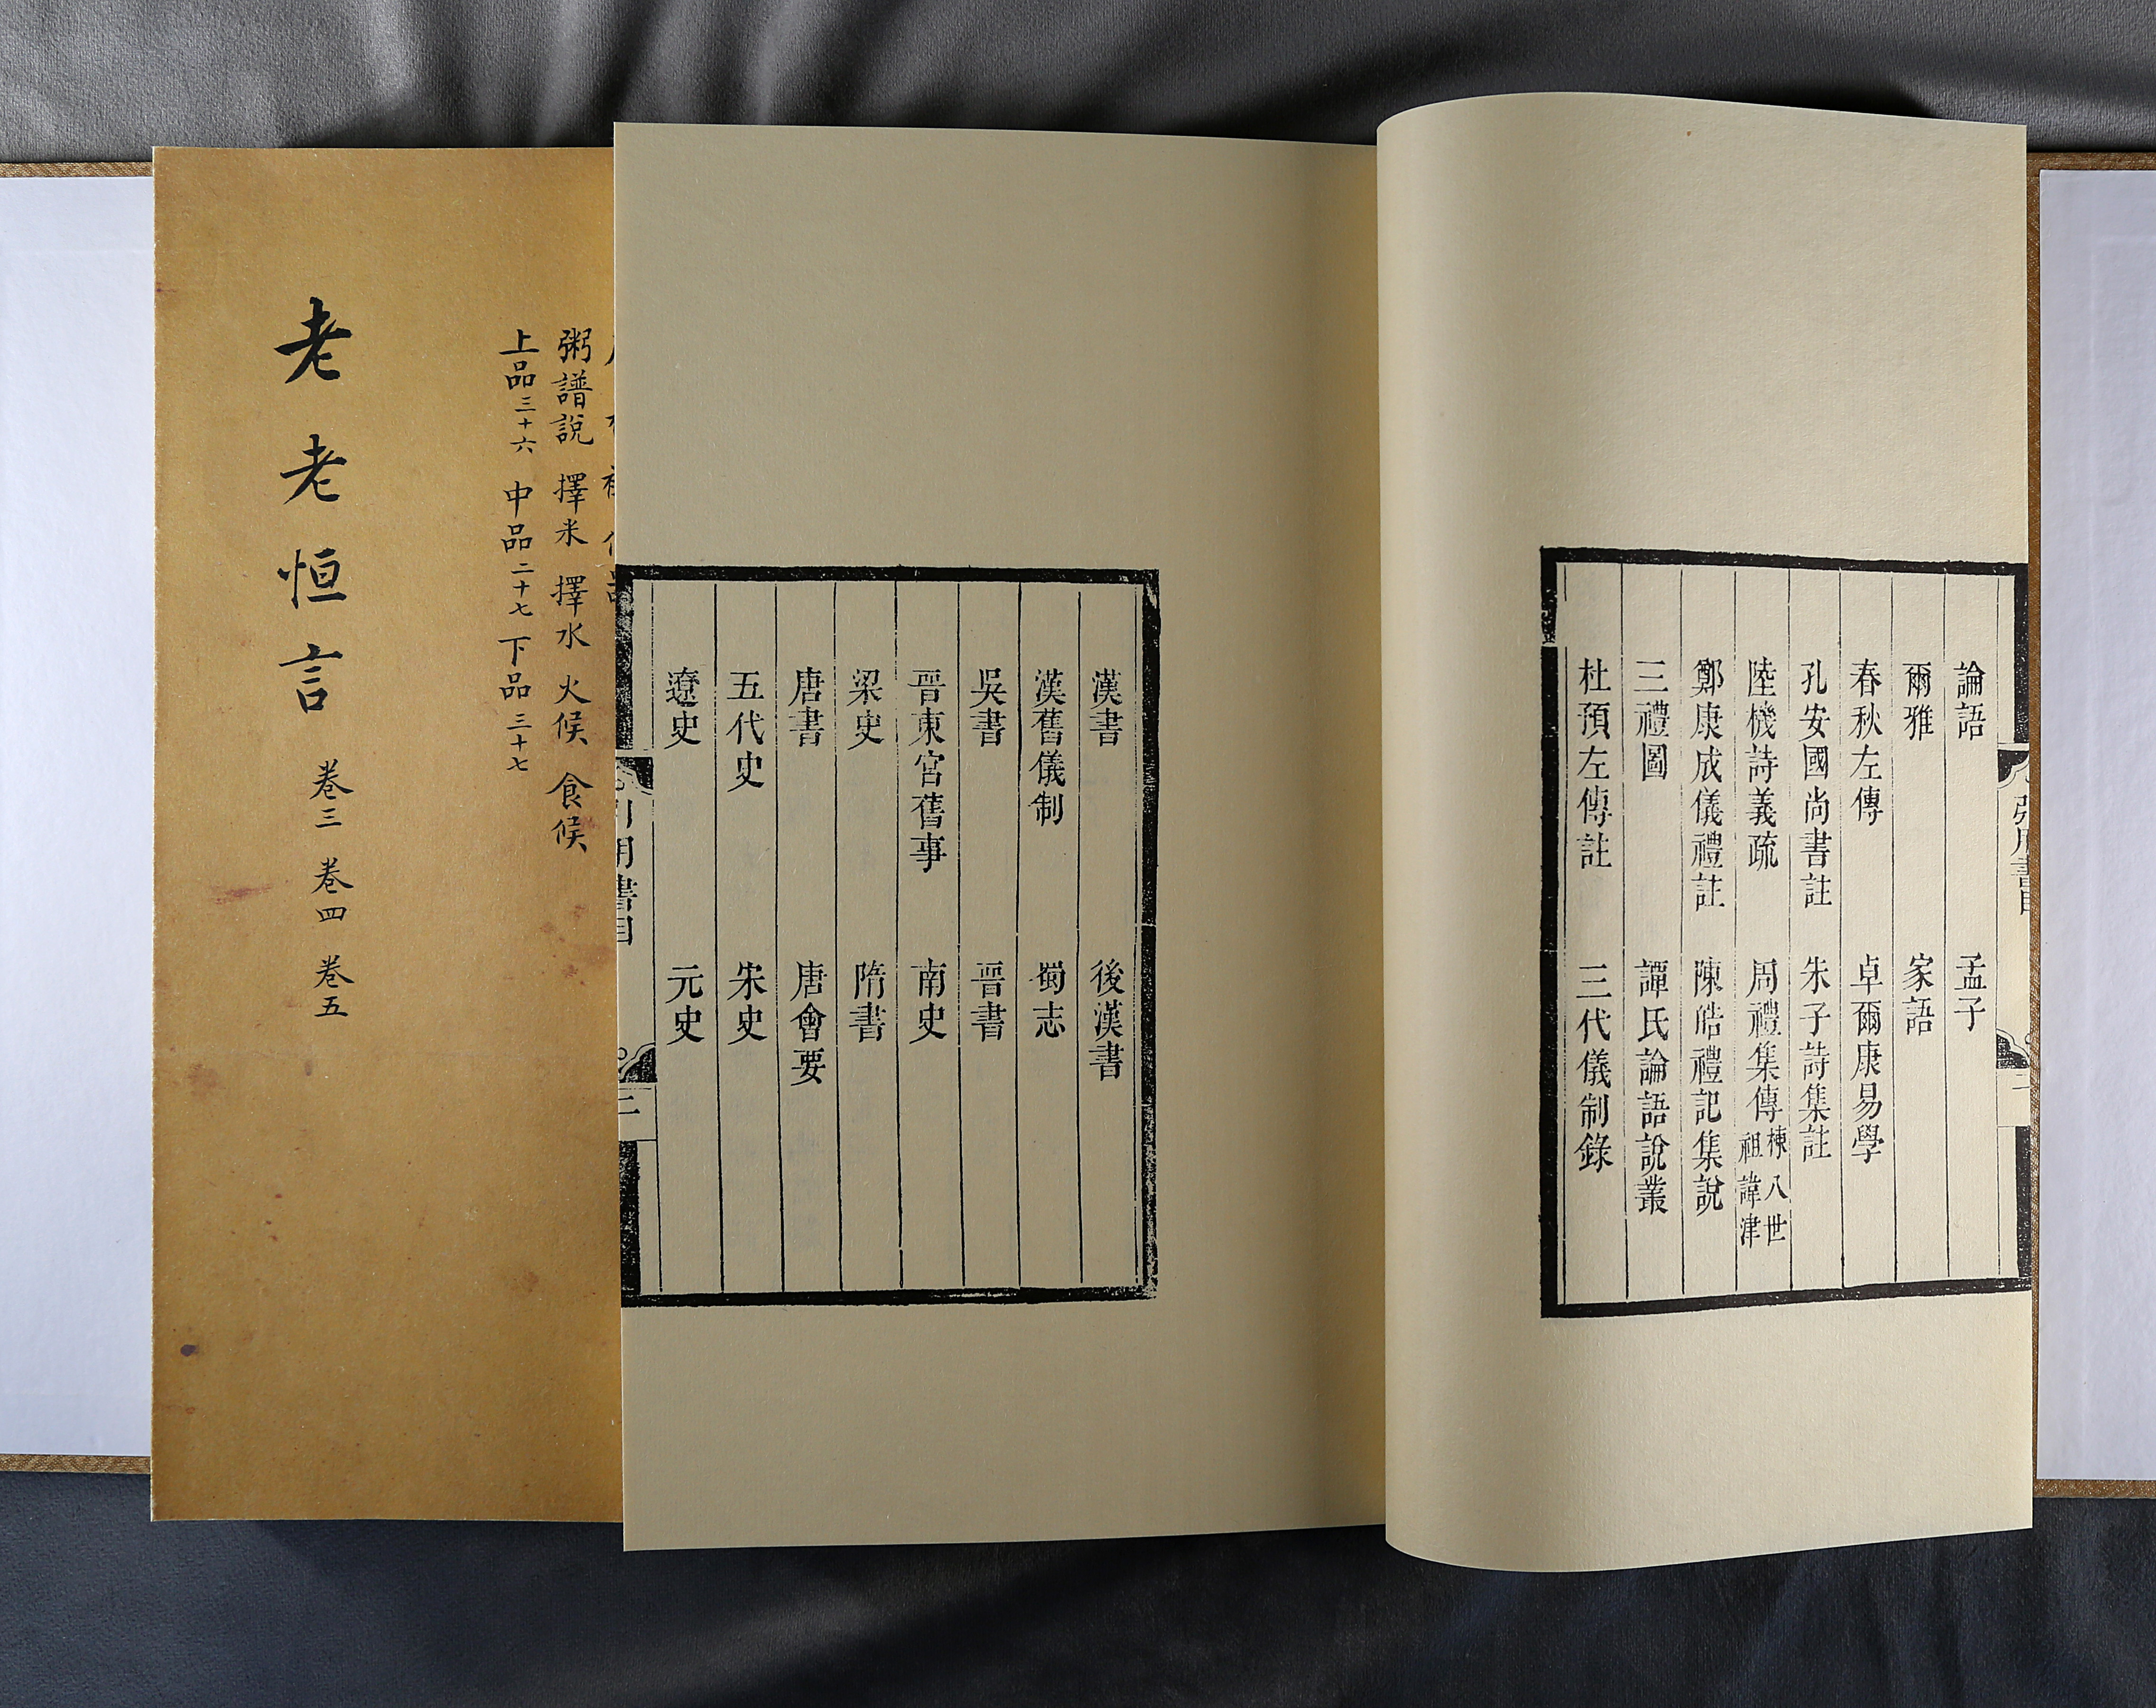 引用書目
論語 孟子
爾雅 家語
春秋左傳 卓爾康易學
孔安國尚書註 朱子詩集註
陸機詩義疏 周禮集傳 棟八世祖諱津
鄭康成儀禮註 陳皓禮記集說
三禮圖 譚氏論語說叢
杜預左傳註 三代儀制錄
漢書 後漢書
漢舊儀制 蜀志
吳書 晉書
晉東宮舊事 南史
梁史 隋書
唐書 唐會要
五代史 宋史
遼史 元史
引用書目 二
粥譜說 擇米 擇水 火候 食候
上品三十六 中品二十七 下品三十七
老老恒言 卷三 卷四 卷五